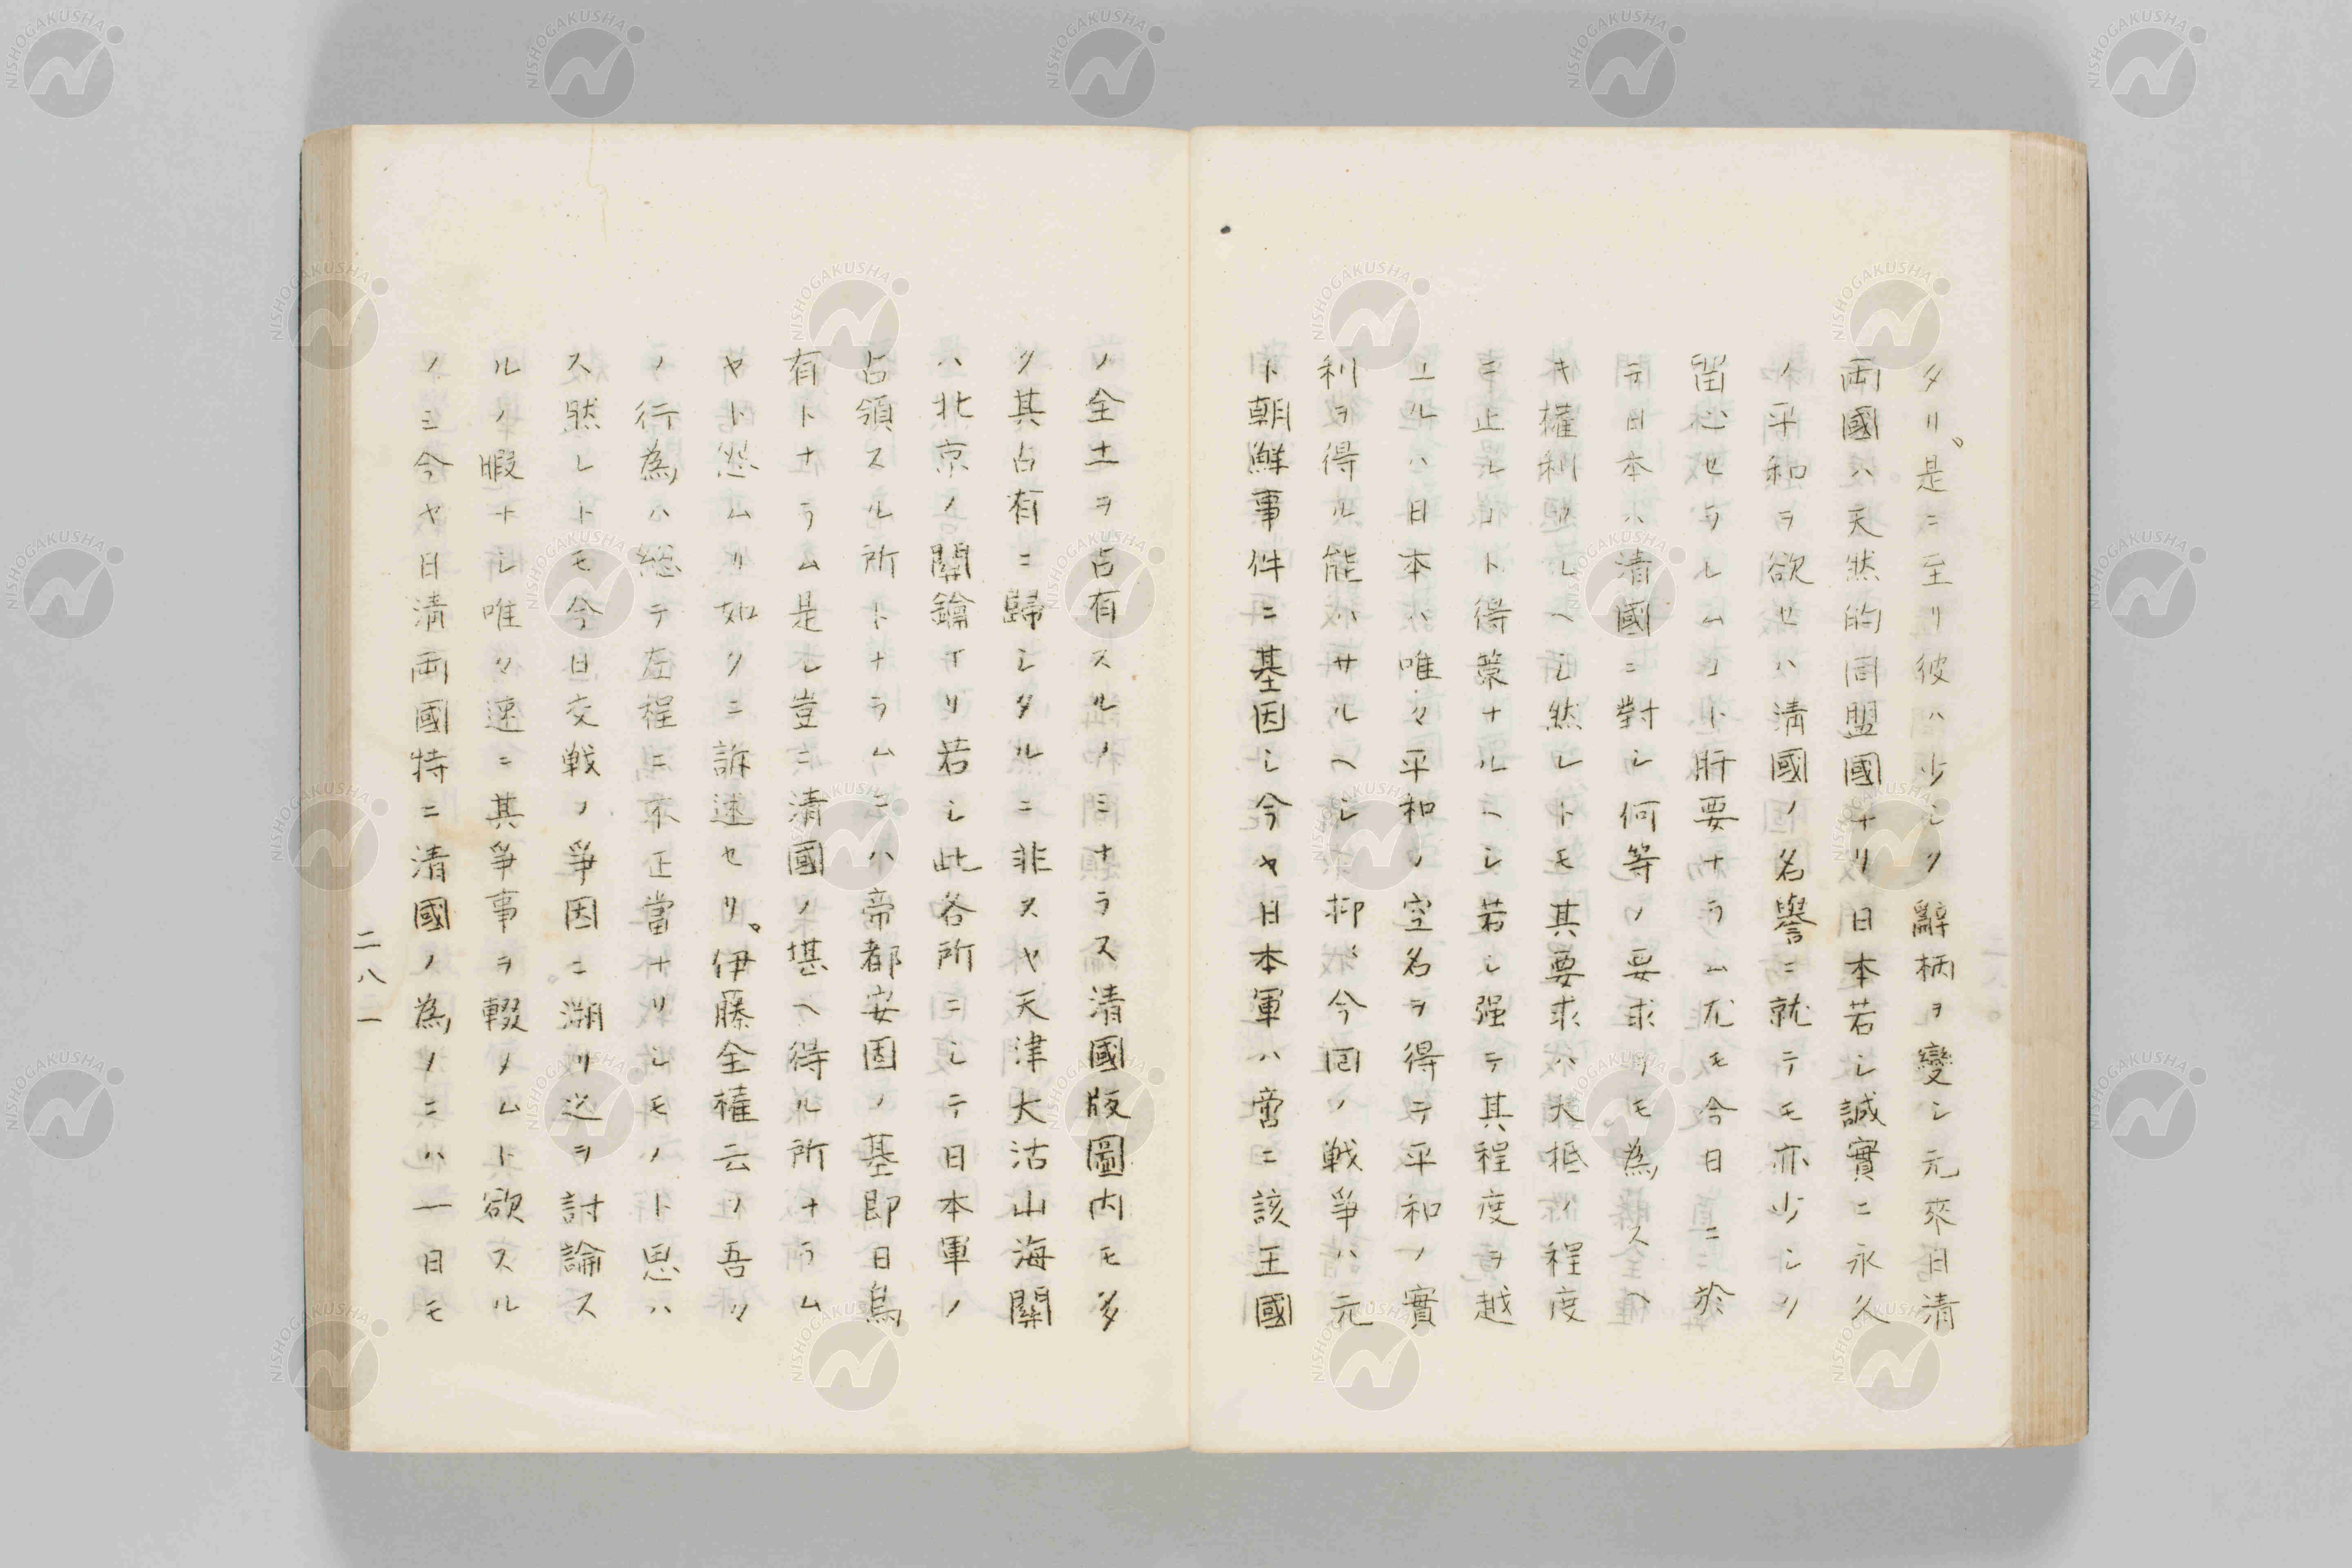 タリ。是ニ至リ彼ハ少シク辭柄ヲ變シ元來日清
両國ハ天然的同盟國ナリ日本若シ誠實ニ永久
ノ平和ヲ欲セハ淸國ノ名譽ニ就テモ亦少シク
留心セラレムコト肝要ナラム尤モ今日ニ於
テ日本ハ清國ニ對シ何等ノ要求ヲモ為スヘ
キ權利アルヘシ然レトモ其要求ハ大抵ノ程度
ニ止ルコト得策ナルヘシ若シ强テ其程度ヲ越
ユルハ日本ハ唯々平和ノ空名ヲ得テ平和ノ實
利ヲ得ル能ハサルヘシ抑〻今回ノ戦爭ハ元
ト朝鮮事件ニ基因シ今ヤ日本軍ハ啻ニ該王國
ノ全土ヲ占有スルノミナラス清國版圖内モ多
ク其占有ニ歸シタルニ非スヤ天津大沽山海關
ハ北京ノ關鑰ナリ若シ此各所ニシテ日本軍ノ
占領スル所トナラムニハ帝都安固ノ基即日烏
有トナラム是レ豈ニ清國ノ堪ヘ得ル所ナラム
ヤト怨ムリ如クニ訴述セリ。伊藤全権云ク吾々
ノ行為ハ総テ左程ニ不正當ナリシモノト思ハ
ス然レトモ今日交戦ノ爭因ニ溯リ込ヲ討論ス
ルノ暇ナシ唯々速ニ其爭事ヲ輟メムト欲スル
ノミ今ヤ日清両國特ニ清國ノ為メニハ一日モ
二八一
NISHOGAKUSHA